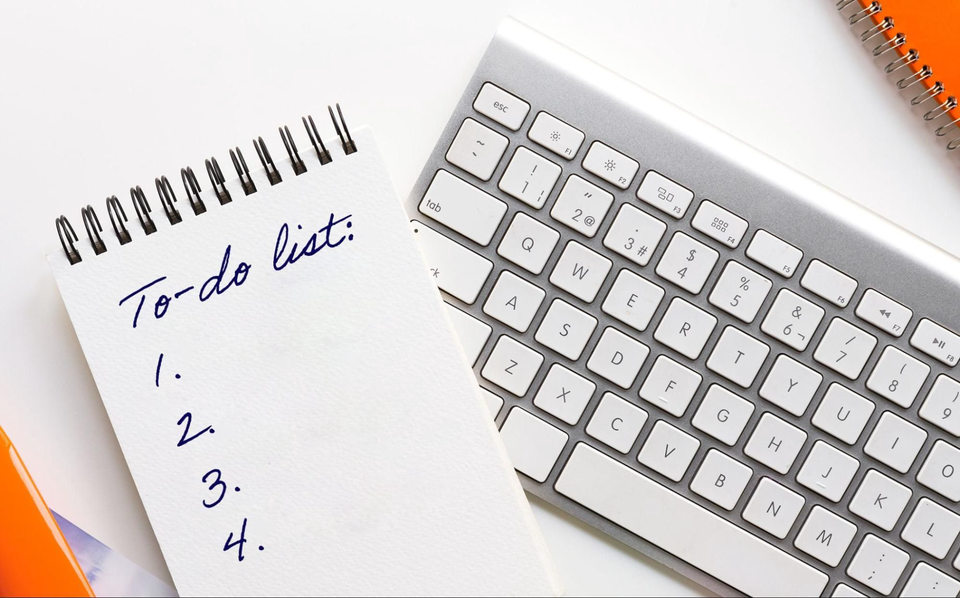 To-do list:
1.
2.
3.
4.
esc
F1
F2
F3
F4
F5
F6
F7
F8
~
! 1
" 2 @
· 3 #
$ 4
% 5
& 6 ¬
/ 7
( 8
) 9
tab
Q
W
E
R
T
Y
U
I
O
A
S
D
F
G
H
J
K
L
Z
X
C
V
B
N
M
;
: